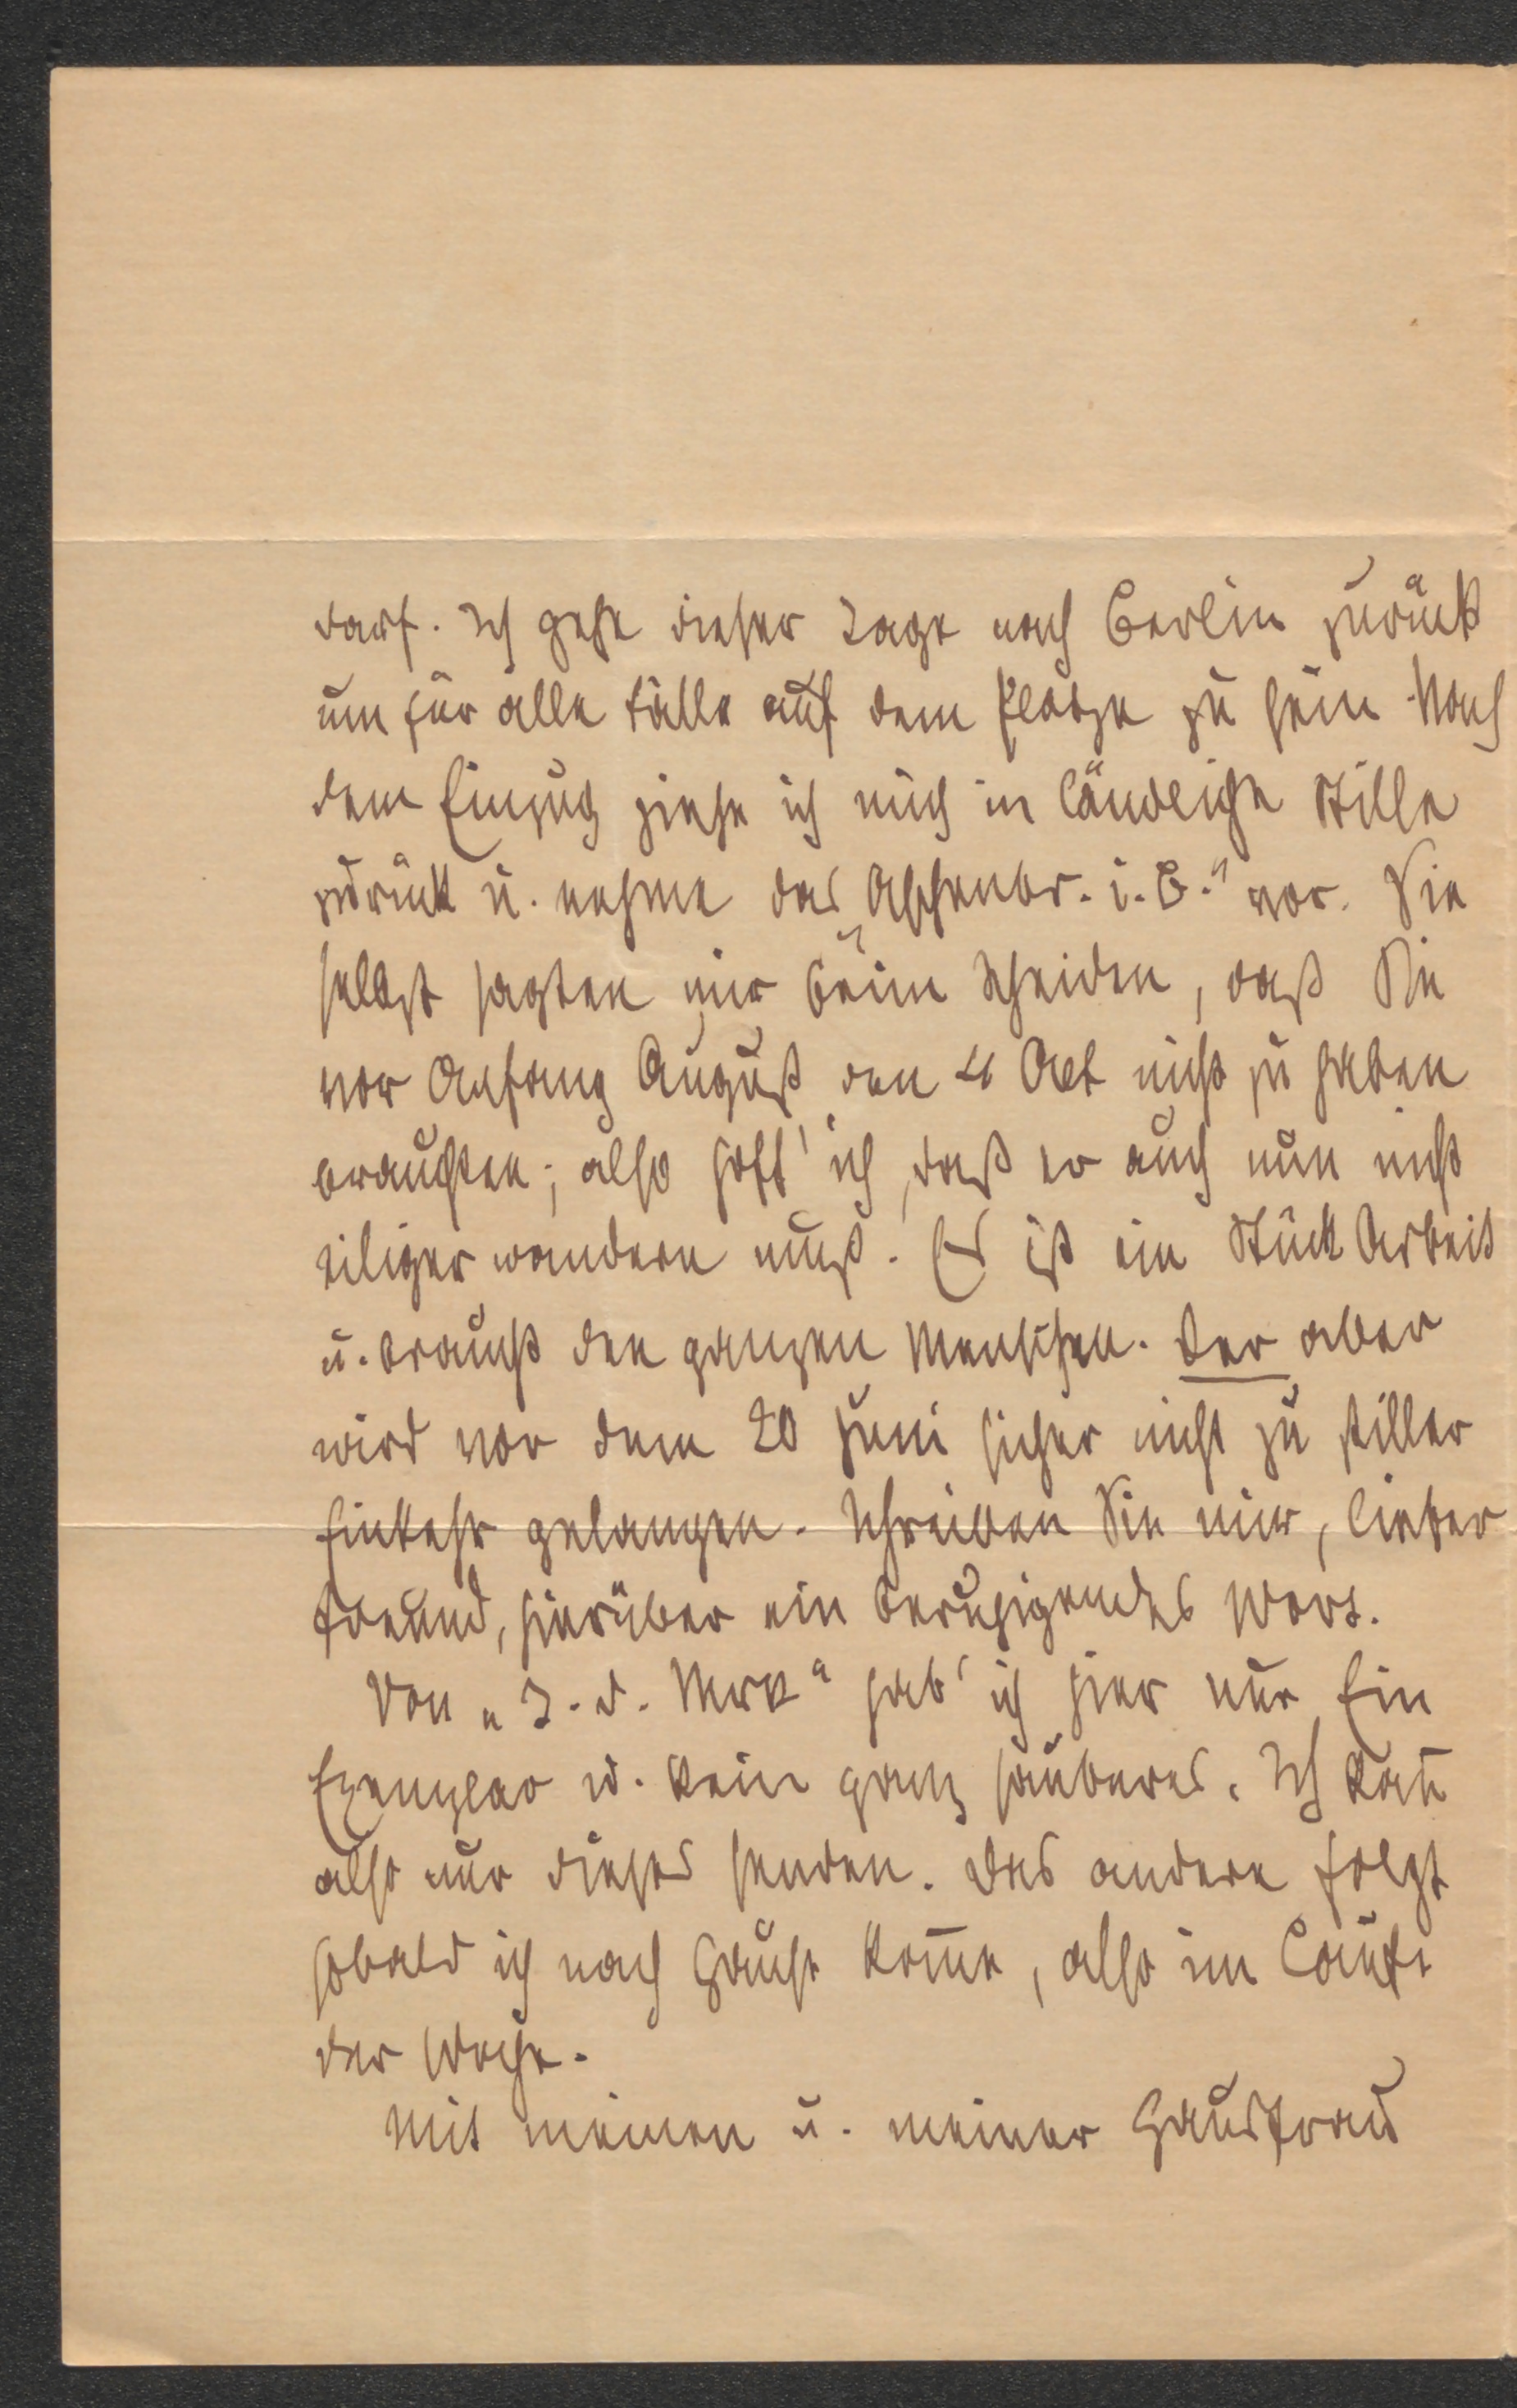 darf. Ich gehe dieser Tage nach Berlin zurück
um für alle Fälle auf dem Platze zu sein. Nach
dem Einzug ziehe ich mich in ländliche Stille
zurück u. nehme das „Aschenbr. i. B." vor. Sie
selbst sagten mir beim Scheiden, daß Sie
vor Anfang August den 4 Act nicht zu haben
brauchten; also hoff' ich, daß er auch nun nicht
eiliger wandern muß. Es ist ein Stück Arbeit
u. braucht den ganzen Menschen. Der aber
wird vor dem 20 Juni sicher nicht zu stiller
Einkehr gelangen. Schreiben Sie mir, lieber
Freund, hierüber ein beruhigendes Wort.
Von „J. d. Mrk" hab' ich hier nur Ein
Exemplar u. kein ganz sauberes. Ich kan̄
also nur dieses senden. Das andere folgt
sobald ich nach Hause kom̄e, also im Laufe
der Woche.
Mit meinen u. meiner Hausfrau